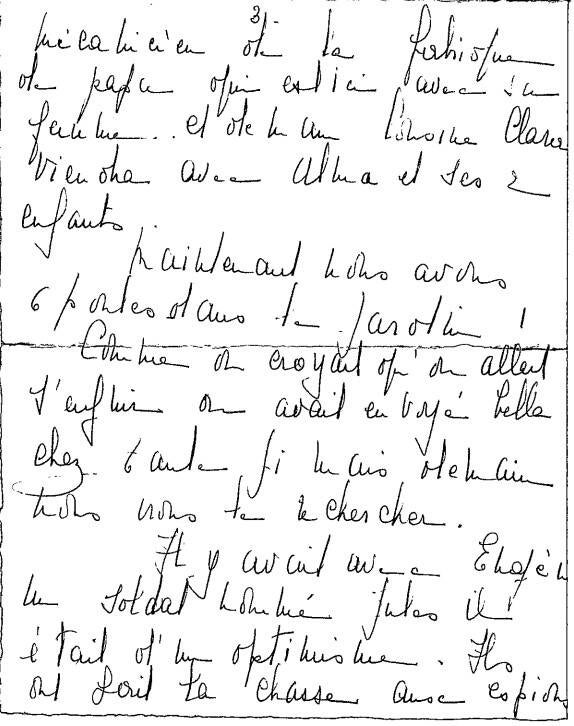 3.
mécanicien de la fabrique
de papa qui est ici avec sa
femme.. et demain Simone Clane
viendra avec Alma et ses 2
enfants.
Maintenant nous avons
6 poules dans le jardin !
Comme on croyait qu'on allait
s'enfuir on avait envoyé Bella
chez tante Fi mais demain
nous irons la rechercher.
Il y avait avec
un soldat nommé Jules il
était d'un optimisme. Ils
ont fait la chasse aux espions